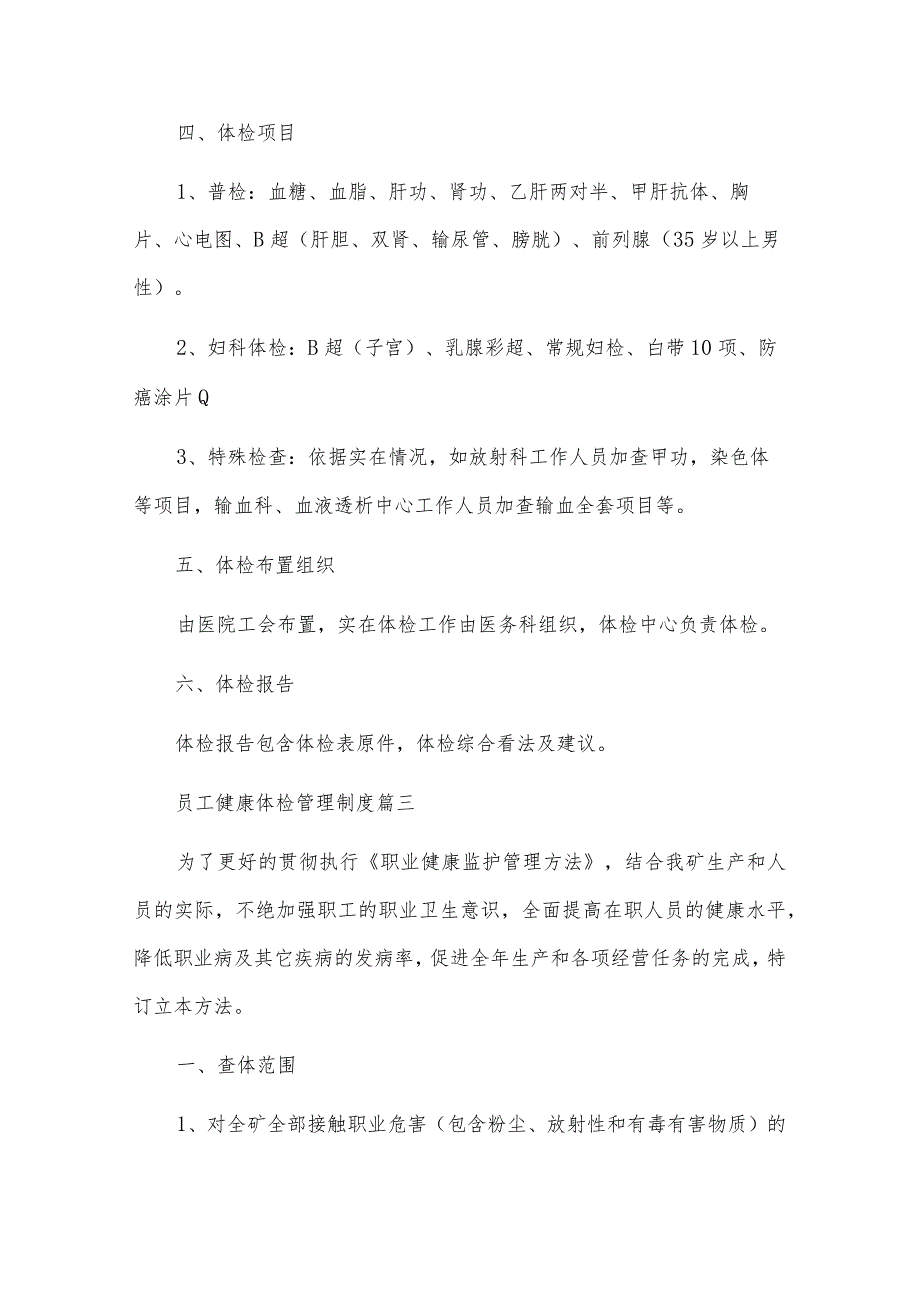 四、体检项目
1、普检：血糖、血脂、肝功、肾功、乙肝两对半、甲肝抗体、胸
片、心电图、B超（肝胆、双肾、输尿管、膀胱）、前列腺（35岁以上男
性）。
2、妇科体检：B超（子宫）、乳腺彩超、常规妇检、白带10项、防
癌涂片Q
3、特殊检查：依据实在情况，如放射科工作人员加查甲功，染色体
等项目，输血科、血液透析中心工作人员加查输血全套项目等。
五、体检布置组织
由医院工会布置，实在体检工作由医务科组织，体检中心负责体检。
六、体检报告
体检报告包含体检表原件，体检综合看法及建议。
员工健康体检管理制度篇三
为了更好的贯彻执行《职业健康监护管理方法》，结合我矿生产和人
员的实际，不绝加强职工的职业卫生意识，全面提高在职人员的健康水平，
降低职业病及其它疾病的发病率，促进全年生产和各项经营任务的完成，特
订立本方法。
一、查体范围
1、对全矿全部接触职业危害（包含粉尘、放射性和有毒有害物质）的